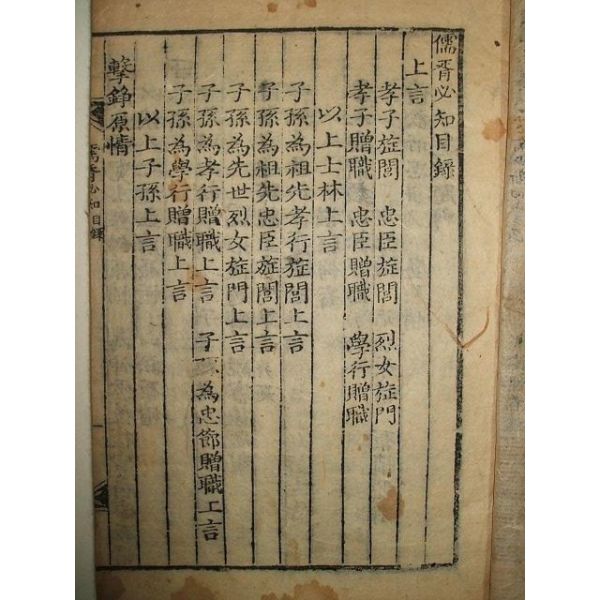 儒胥必知目錄
上言
孝子旌閭　忠臣旌閭　烈女旌門
孝子贈職　忠臣贈職　學行贈職
以上士林上言
子孫為祖先孝行旌閭上言
子孫為祖先忠臣旌閭上言
子孫為先世烈女旌門上言
子孫為孝行贈職上言　子孫為忠節贈職上言
子孫為學行贈職上言
以上子孫上言
擊錚原情
儒胥必知目錄